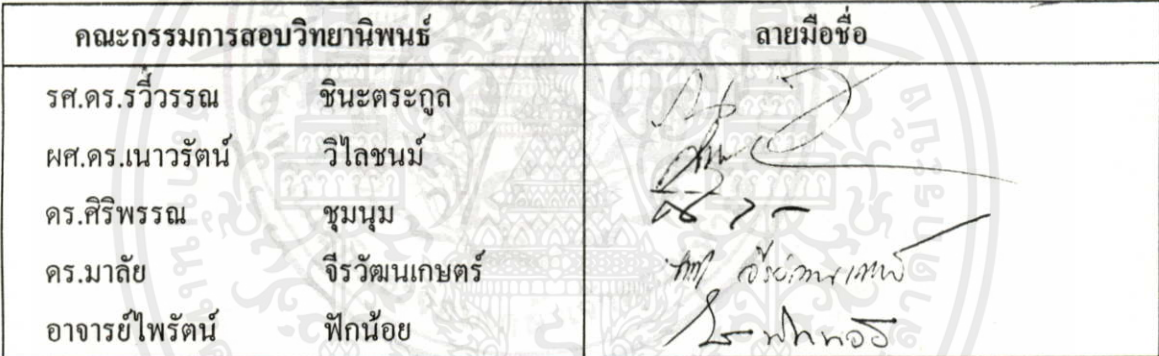 คณะกรรมการสอบวิทยานิพนธ์ ลายมือชื่อ
รศ.ดร.รวีวรรณ ชินะตระกูล
ผศ.ดร.เนาวรัตน์ วิไลชนม์
ดร.ศิริพรรณ ชุมนุม
ดร.มาลัย จีรวัฒนเกษตร์
อาจารย์ไพรัตน์ ฟักน้อย